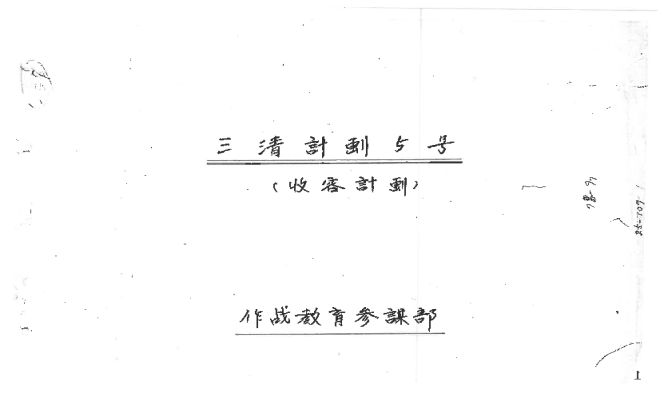 三淸計劃5号
(收容計劃)
作战教育参謀部
1